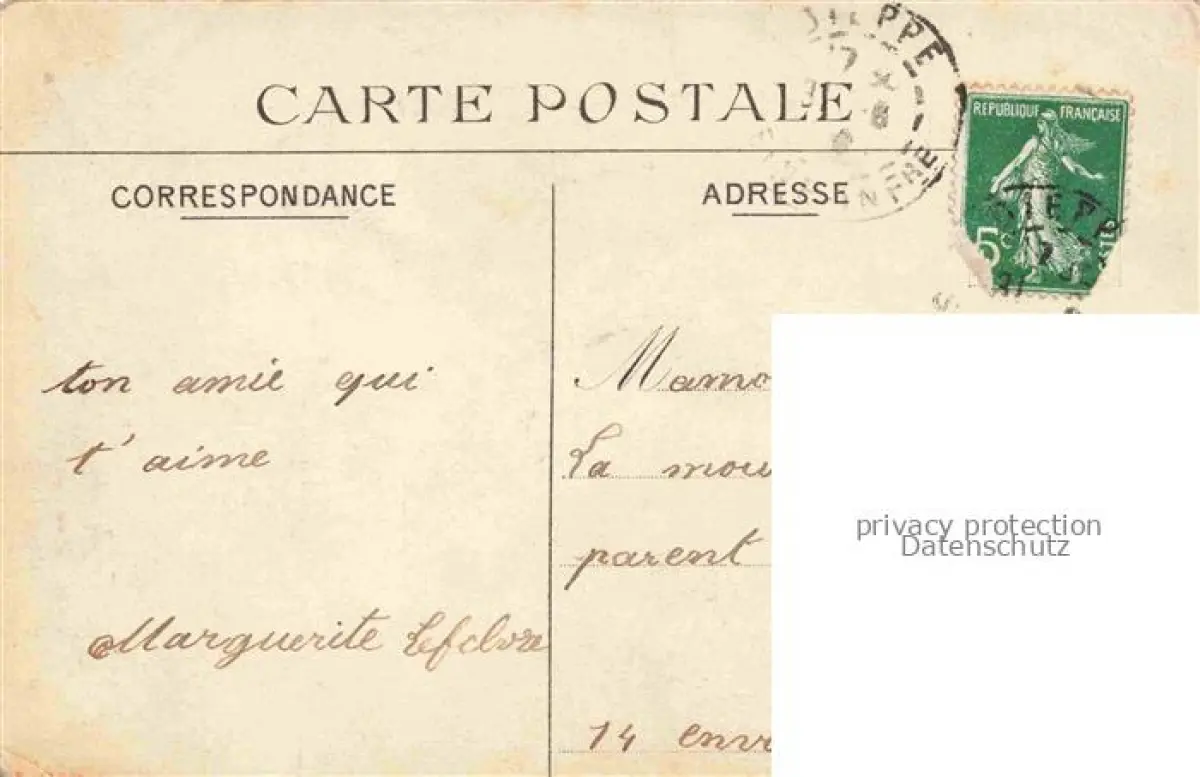 CARTE POSTALE
CORRESPONDANCE
ADRESSE
REPUBLIQUE FRANÇAISE
5c
ton amie qui
t'aime
Marguerite
La
parent
14
privacy protection
Datenschutz